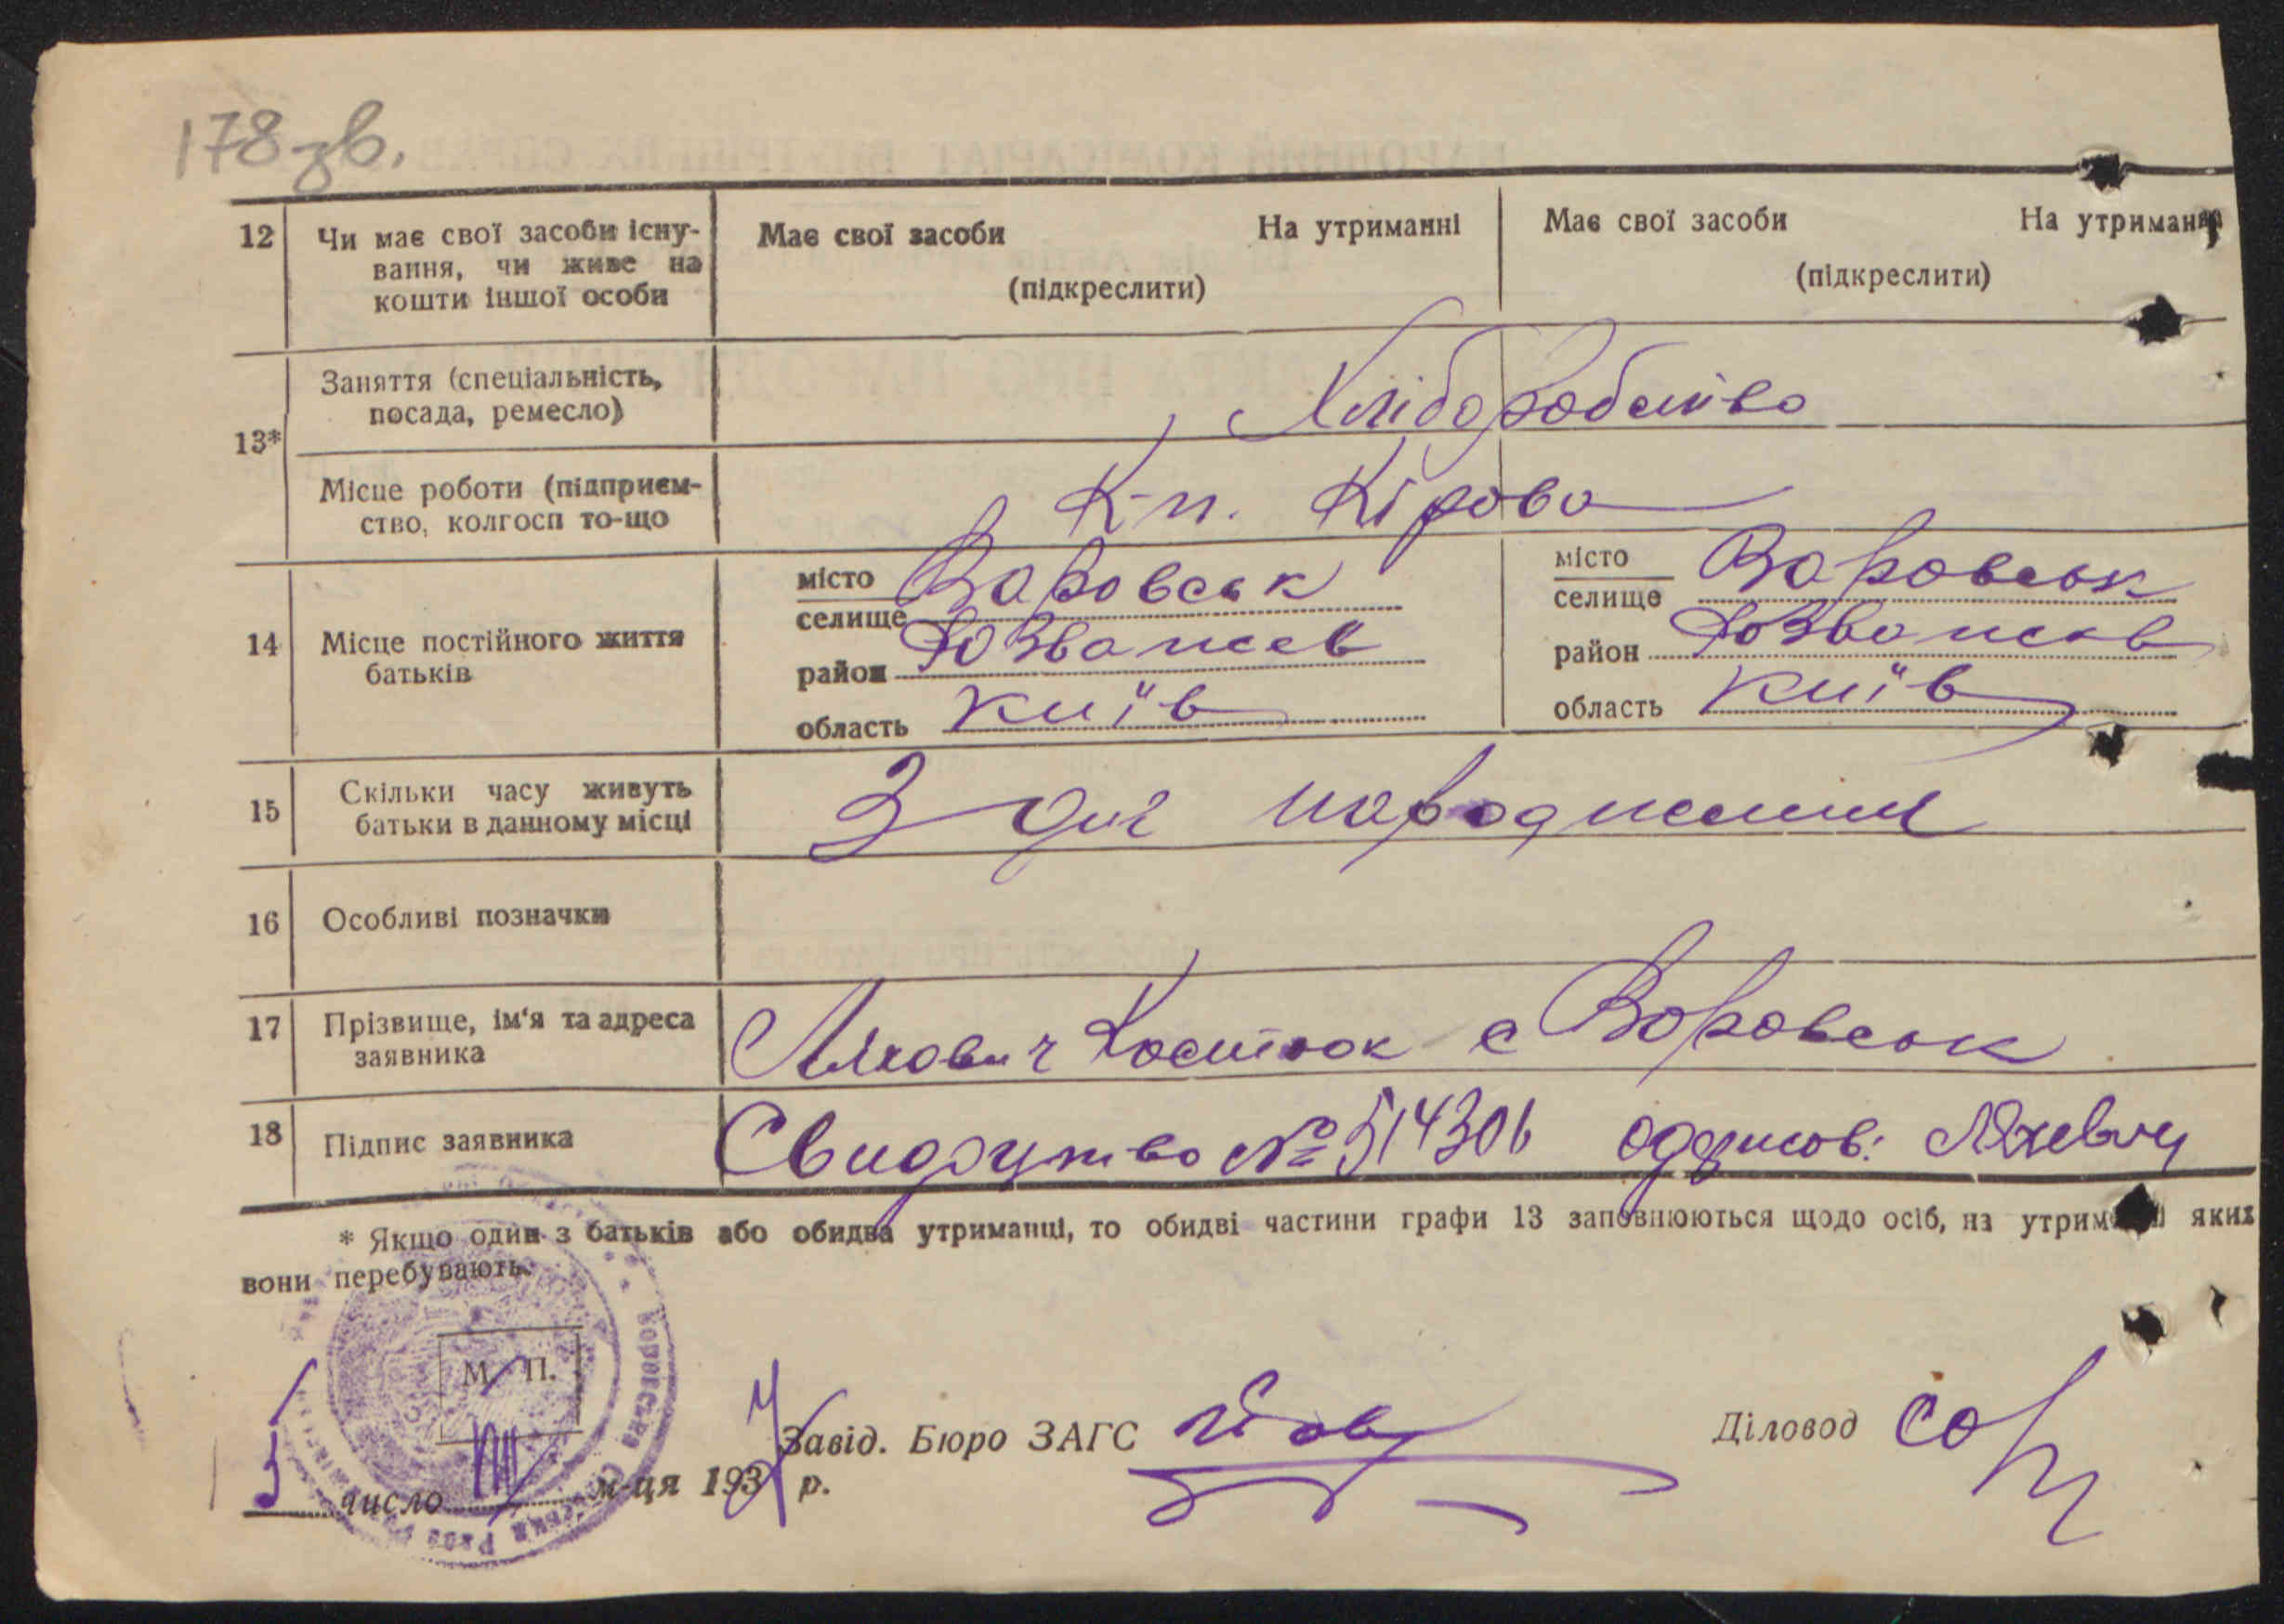 178 зв.
12 Чи має свої засоби існу- Має свої засоби На утриманні Має свої засоби На утриманні
вання, чи живе на
кошти іншої особи (підкреслити) (підкреслити)
13* Заняття (спеціальність,
посада, ремесло) Хліборобство
Місце роботи (підприєм- К-п. Кірова
ство, колгосп то-що
14 Місце постійного життя
батьків
місто Воровськ місто Воровськ
селище селище
район Розважев район Розважев
область Київ область Київ
15 Скільки часу живуть
батьки в данному місці З дні народження
16 Особливі позначки
17 Прізвище, ім'я та адреса
заявника Ляхович Костюк с Воровськ
18 Підпис заявника Свидоцтво № 514306 одержов: Ляхович
* Якщо один з батьків або обидва утриманці, то обидві частини графи 13 заповнюються щодо осіб, на утриманні яких
вони перебувають.
М. П.
Завід. Бюро ЗАГС Діловод
5 число VIII м-ця 1937 р.